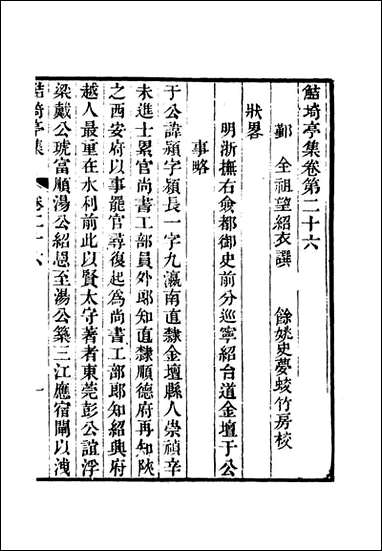 鮚埼亭集卷第二十六
鄞 全祖望紹衣譔 餘姚史夢蛟竹房校
狀畧
明浙撫右僉都御史前分巡寧紹台道金壇于公
事略
于公諱潁字潁長一字九瀛南直隸金壇縣人崇禎辛
未進士累官尚書工部員外郎知直隸順德府再知陝
之西安府以事罷官尋復起為尚書工部郎知紹興府
越人最重在水利前此以賢太守著者東莞彭公誼浮
梁戴公琥富順湯公紹恩至湯公築三江應宿閘以洩
鮚埼亭集 卷二十六 一